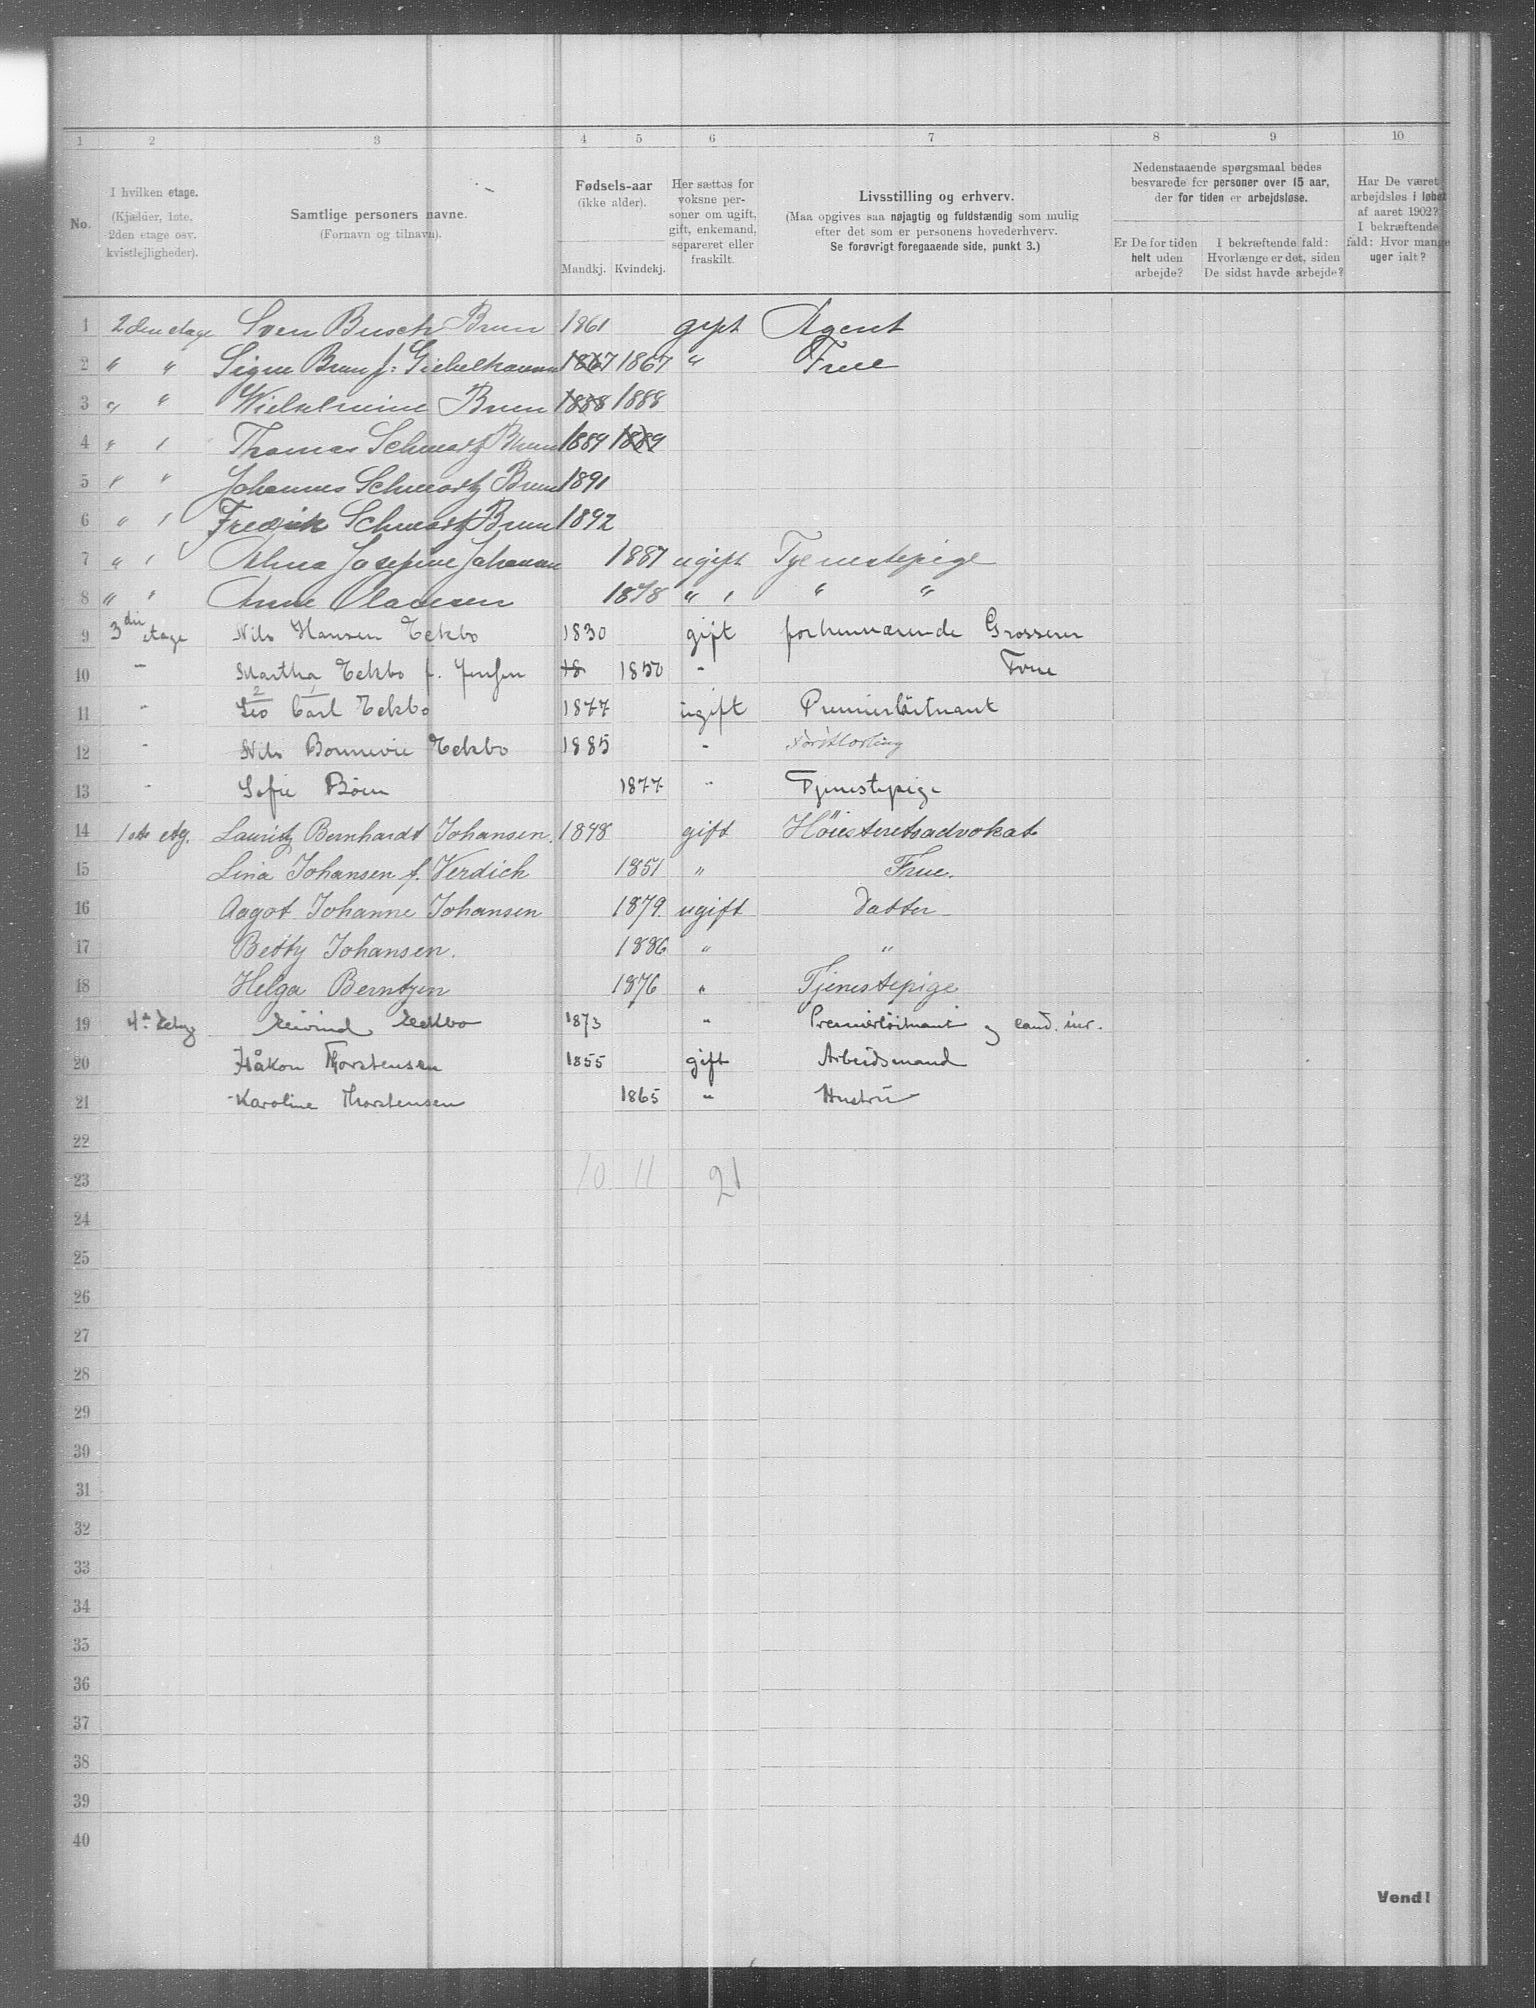 1 2 3 4 5 6 7 8 9 10
No.
I hvilken etage.
(Kjælder, 1ste.
2den etage osv.
kvistlejligheder).
Samtlige personers navne.
(Fornavn og tilnavn).
Fødsels-aar
(ikke alder).
Mandkj. Kvindekj.
Her sættes for
voksne per-
soner om ugift,
gift, enkemand,
separeret eller
fraskilt.
Livsstilling og erhverv.
(Maa opgives saa nøjagtig og fuldstændig som mulig
efter det som er personens hovederhverv.
Se forøvrigt foregaaende side, punkt 3.)
Nedenstaaende spørgsmaal bedes
besvarede for personer over 15 aar,
der for tiden er arbejdsløse.
Er De for tiden
helt uden
arbejde?
I bekræftende fald:
Hvorlænge er det, siden
De sidst havde arbejde?
Har De været
arbejdsløs i løbet
af aaret 1902?
I bekræftende
fald: Hvor mange
uger ialt?
1 2den etage Sven Busch Brun 1861 gift Agent
2 " " Signe Brun f: Giebelhausen 1867 1867 " Frue
3 " " Wilhelmine Brun 1888 1888
4 " " Thomas Schwartz Brun 1889 1889
5 " " Johannes Schwartz Brun 1891
6 " " Fredrik Schwartz Brun 1892
7 " " Alma Josefine Johansen 1881 ugift Tjenestepige
8 " " Anne Olaussen 1878 " " " "
9 3die etage Nils Hansen Eckbo 1830 gift forhenværende Grosserer
10 " Martha Eckbo f. Jensen 18 1850 " Frue
11 " Leo Carl Eckbo 1877 ugift Premierløitnant
12 " Nils Bonnevie Eckbo 1885 "
13 " Sofie Böen 1877 " Tjenestepige
14 1ste etg. Lauritz Bernhardt Johansen. 1848 gift Höiesteretsadvokat
15 Lina Johansen f. Verdich 1851 " Frue.
16 Aagot Johanne Johansen 1879. ugift Datter
17 Betty Johansen. 1886 " "
18 Helga Berntzen 1876 " Tjenestepige
19 4de Etag Eivind Eckbo 1873 " Premierløitnant og cand. jur.
20 Håkon Thorstensen 1855 gift Arbeidsmand
21 Karoline Thorstensen 1865 " Hustru
22
23 10 11 21
24
25
26
27
28
29
30
31
32
33
34
35
36
37
38
39
40
Vend!